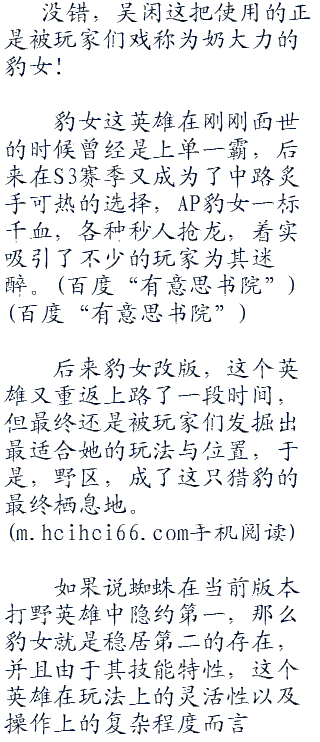 没错，吴闲这把使用的正
是被玩家们戏称为奶大力的
豹女！
豹女这英雄在刚刚面世
的时候曾经是上单一霸，后
来在S3赛季又成为了中路炙
手可热的选择，AP豹女一标
千血，各种秒人抢龙，着实
吸引了不少的玩家为其迷
醉。(百度“有意思书院”)
(百度“有意思书院”)
后来豹女改版，这个英
雄又重返上路了一段时间，
但最终还是被玩家们发掘出
最适合她的玩法与位置，于
是，野区，成了这只猎豹的
最终栖息地。
(m.hcihci66.com手机阅读)
如果说蜘蛛在当前版本
打野英雄中隐约第一，那么
豹女就是稳居第二的存在，
并且由于其技能特性，这个
英雄在玩法上的灵活性以及
操作上的复杂程度而言